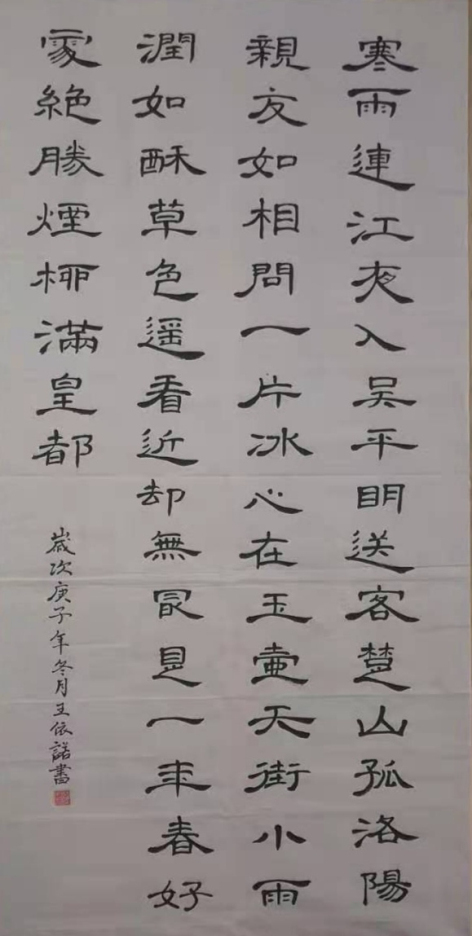 寒雨連江夜入吴平明送客楚山孤洛陽
親友如相問一片冰心在玉壺天街小雨
潤如酥草色遥看近却無最是一年春好
處絶勝煙柳滿皇都
歲次庚子年冬月王依諾書